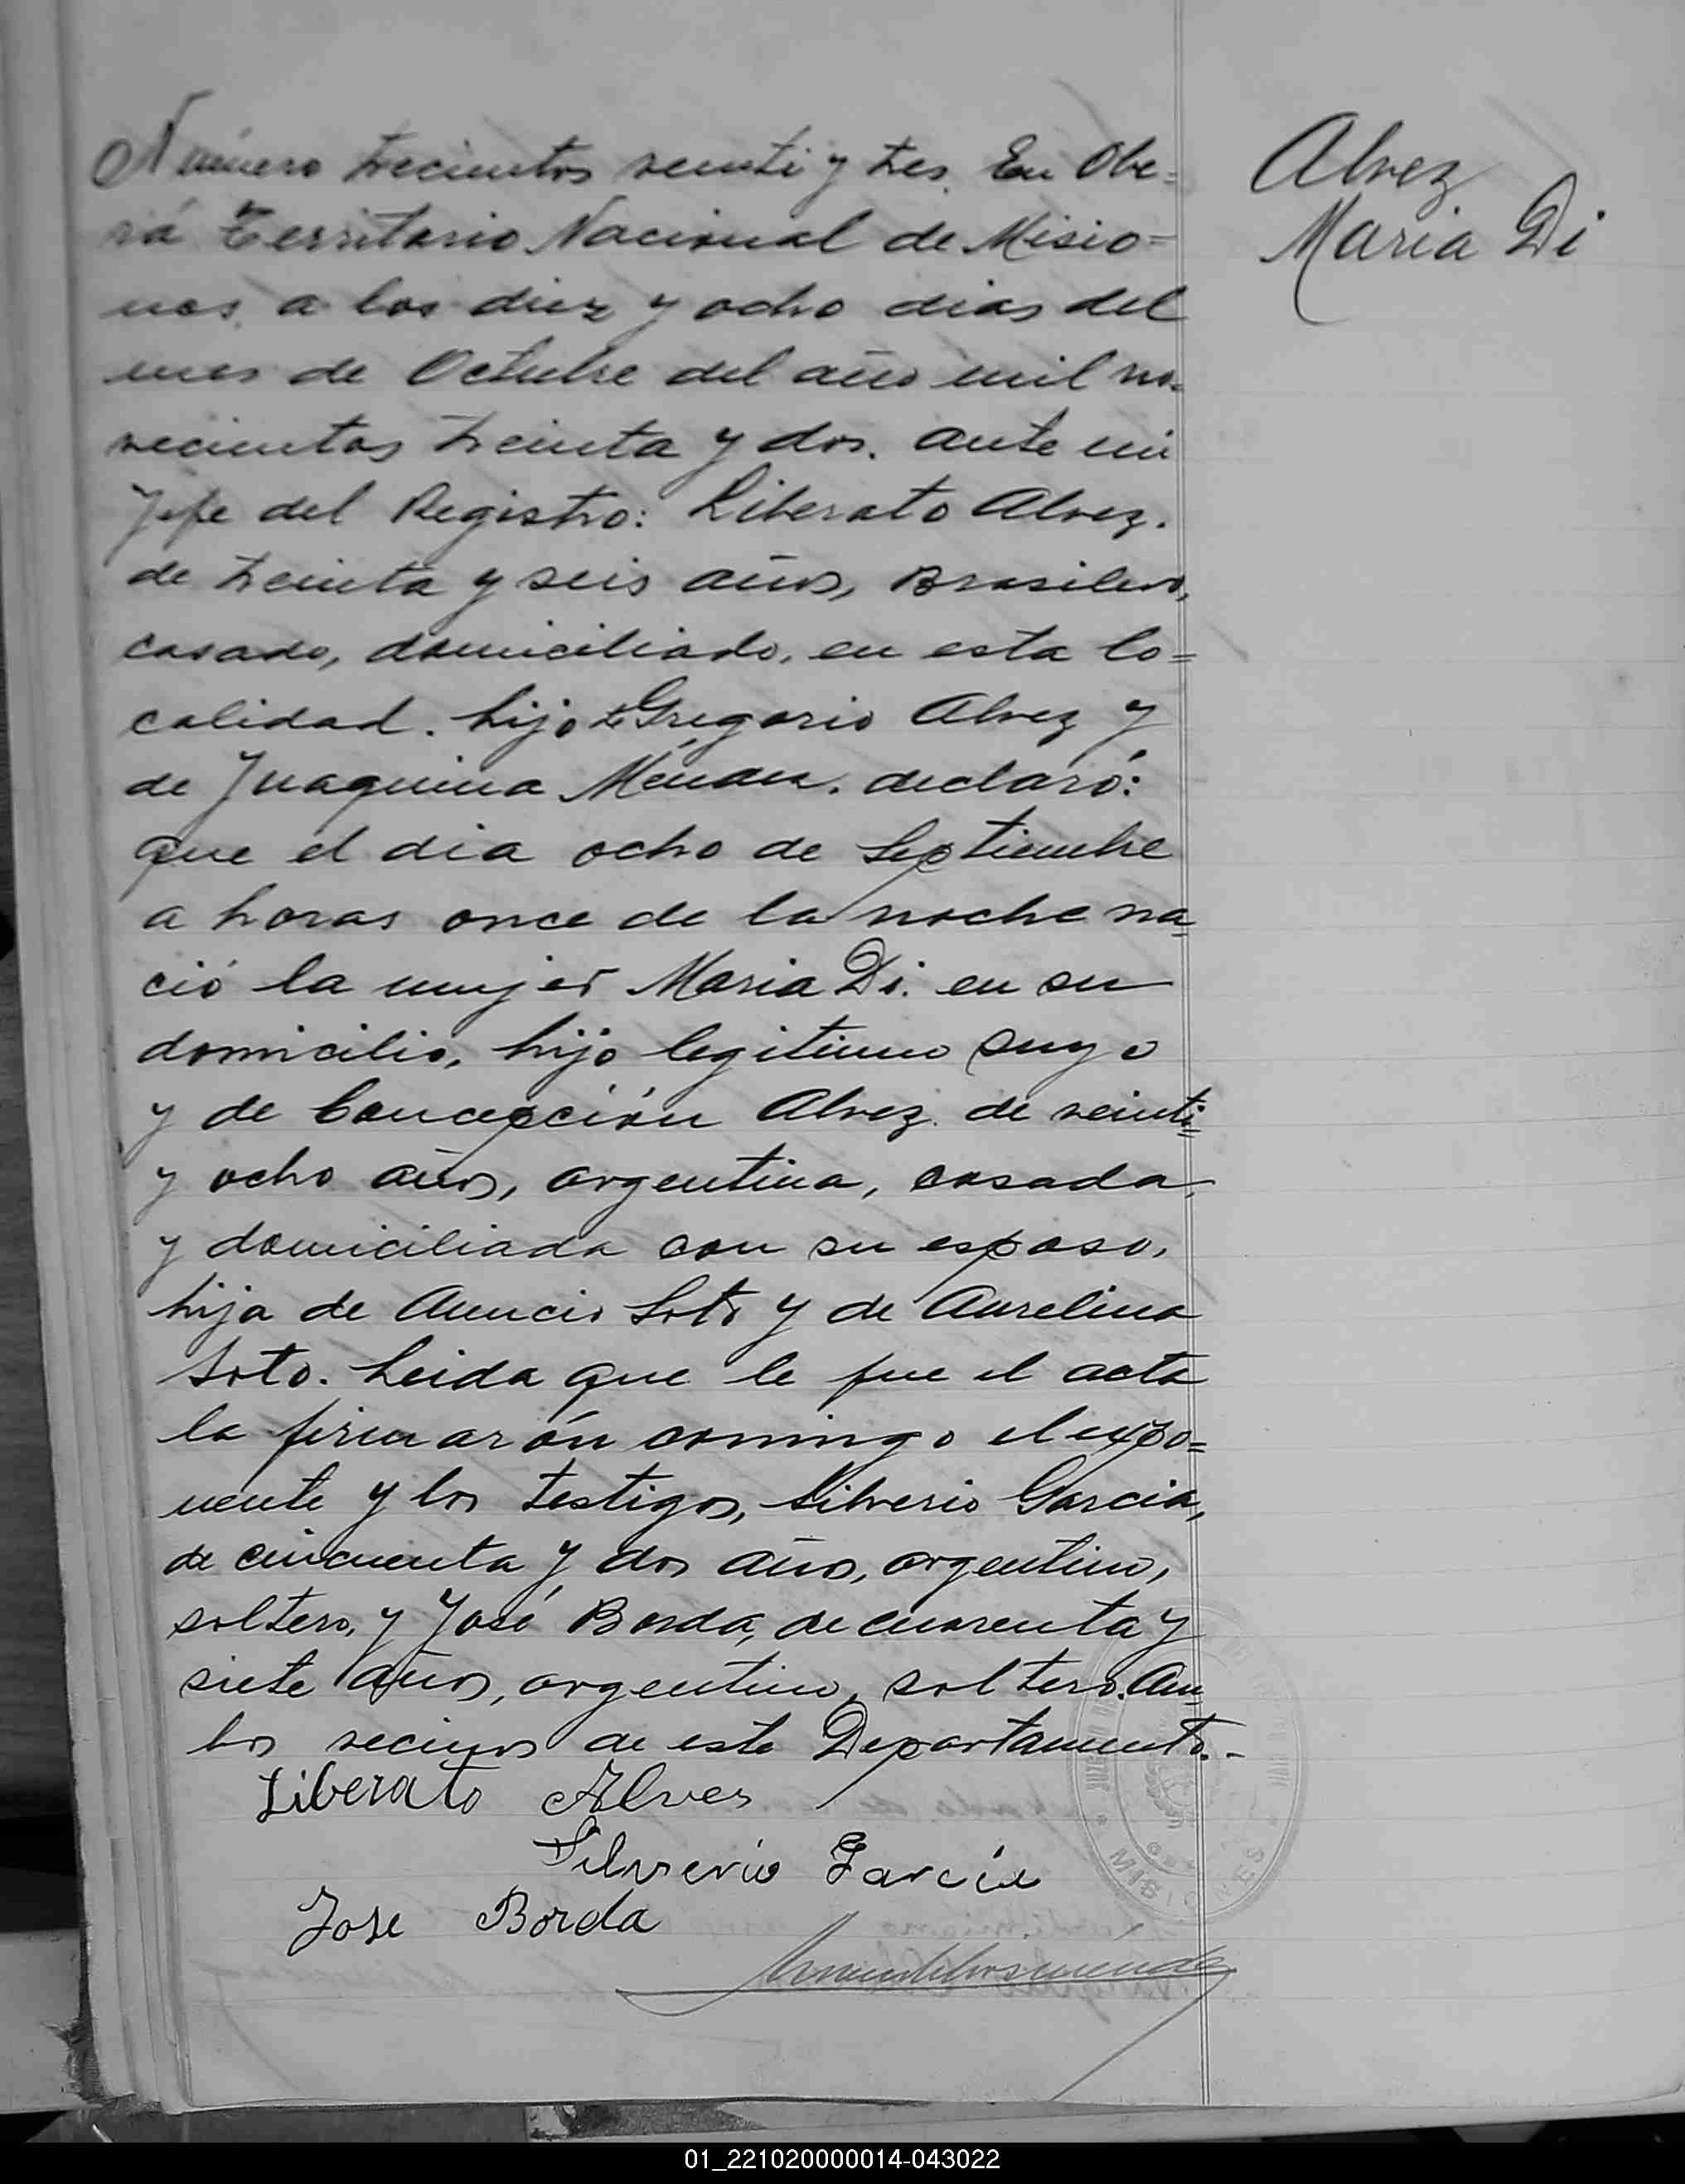 Número trecientos veinti y tres. En Obe=
rá Territorio Nacional de Misio=
nes, a los diez y ocho dias del
mes de Octubre del año mil no=
vecientos treinta y dos. ante mi
Jefe del Registro: Liberato Alvez.
de treinta y seis años, Brasilero,
casado, domiciliado, en esta lo=
calidad. hijo de Gregorio Alvez y
de Juaquina Méndez. declaró:
que el dia ocho de Septiembre
a horas once de la noche na=
ció la mujer Maria Di. en su
domicilio, hijo legitimo suyo
y de Concepción Alvez. de veinti=
y ocho años, argentina, casada,
y domiciliada con su esposo,
hija de Auncio Soto y de Aurelina
Soto. Leida que le fue el acta
la firmarón comingo el expo=
nente y los testigos, Silverio Garcia,
de cincuenta y dos años, argentino,
soltero, y José Borda, de cuarenta y
siete años, argentino, soltero. Am=
bos vecinos de este Departamento.-
Liberato Alves
Silverio Garcia
Jose Borda
Alvez
Maria Di
MISIONES
01_221020000014-043022